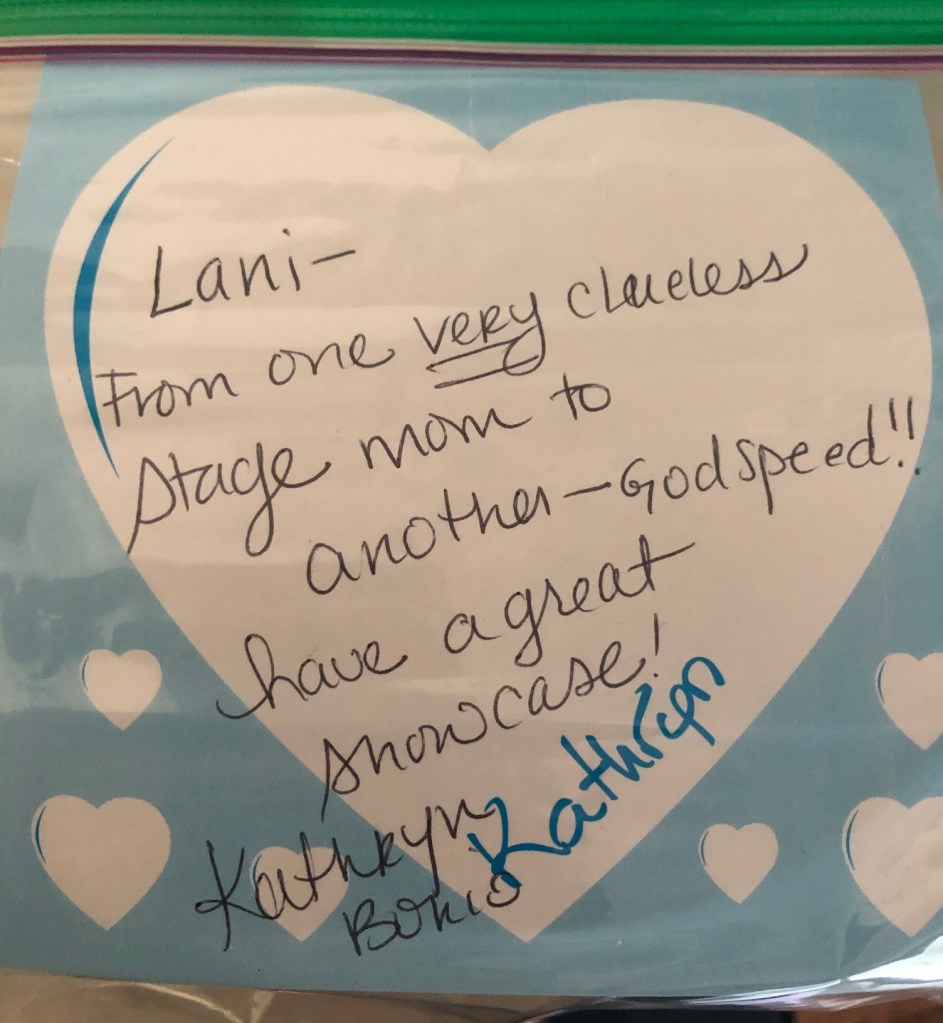 Lani-
From one very clueless
stage mom to
another-Godspeed!!
have a great
showcase!
Kathryn
Kathryn